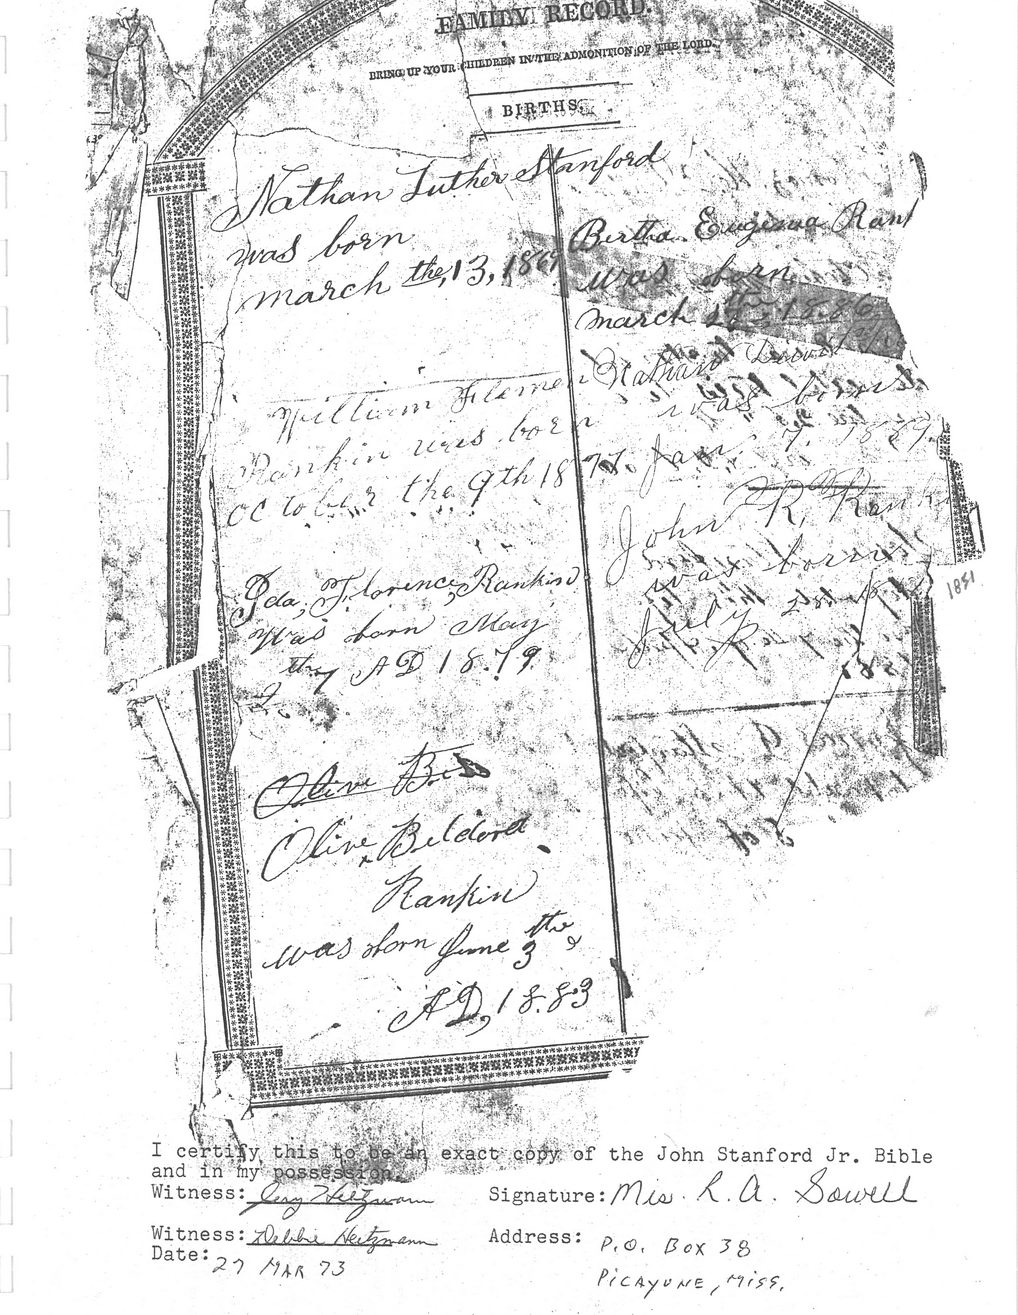 FAMILY RECORD.
BRING UP YOUR CHILDREN IN THE ADMONITION OF THE LORD.
BIRTHS.
Nathan Luther Stanford
was born
march the, 13, 1869
William Flemen
Rankin was born
october the 9th 1877.
Ida, Florence, Rankin
Was born May
the 7 AD 18.79.
Olive
Olive Beldora
Rankin
was born June 3 the
AD, 18.83
Bertha Eugiena Ran
was born
march the 18.86
Nathan
was born
Jan. 7. 1889.
John R. Rank
was born
July
1881
I certify this to be an exact copy of the John Stanford Jr. Bible
and in my possession.
Witness: Jerry Heitzmann
Signature: Mrs. R. A. Sowell
Witness: Debbie Heitzmann
Address: P.O. BOX 38
Date: 27 MAR 73
PICAYUNE, MISS.